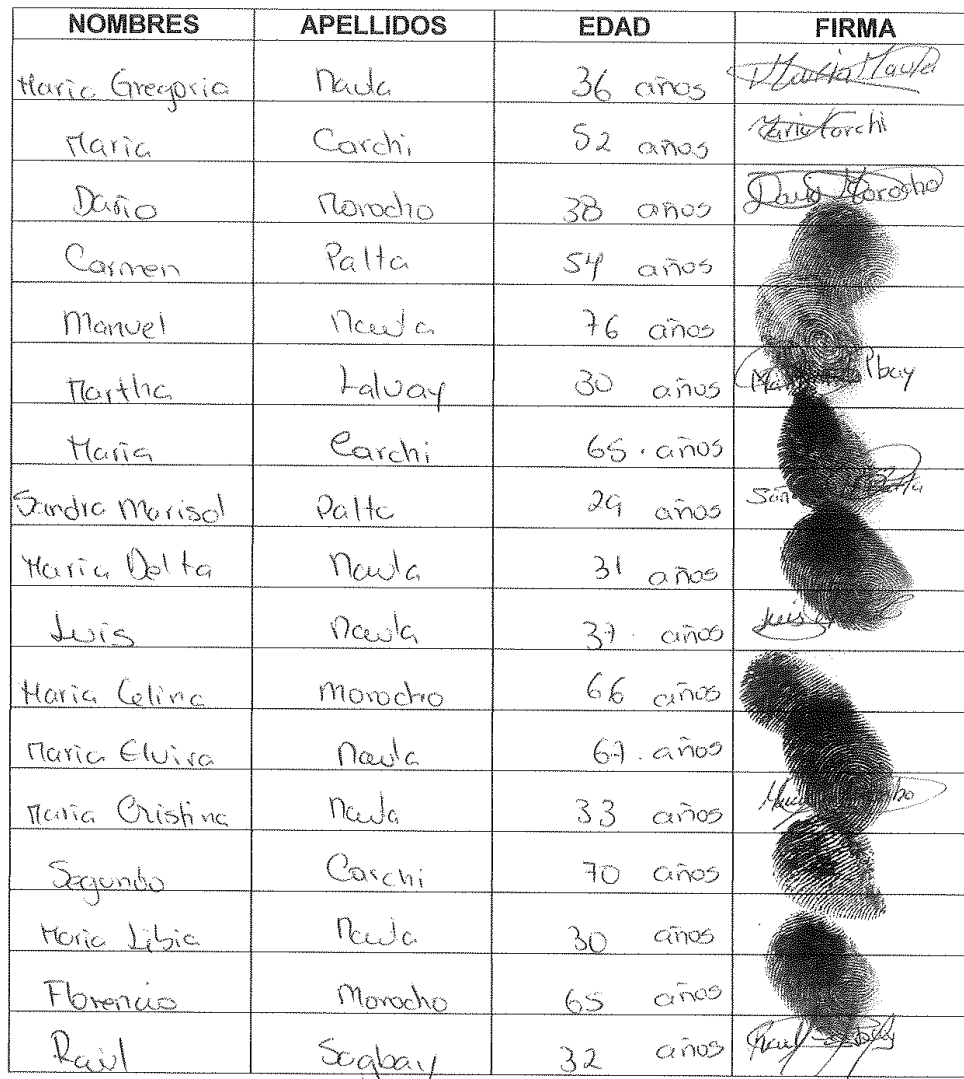 NOMBRES APELLIDOS EDAD FIRMA
Maria Gregoria Naula 36 años Maria Naula
Maria Carchi 52 años Maria Carchi
Dario Morocho 38 años Morocho
Carmen Palta 54 años
Manuel Naula 76 años
Martha 30 años
Maria Carchi 65 años
Sandra Marisol Palta 29 años
Maria Delta Naula 31 años
Luis Naula 37 años Luis
Maria Celina Morocho 66 años
Maria Elvira Naula 67 años
Maria Cristina Naula 33 años
Segundo Carchi 70 años
Maria Libia Naula 30 años
Florencio Morocho 65 años
Raúl Sagbay 32 años Raul